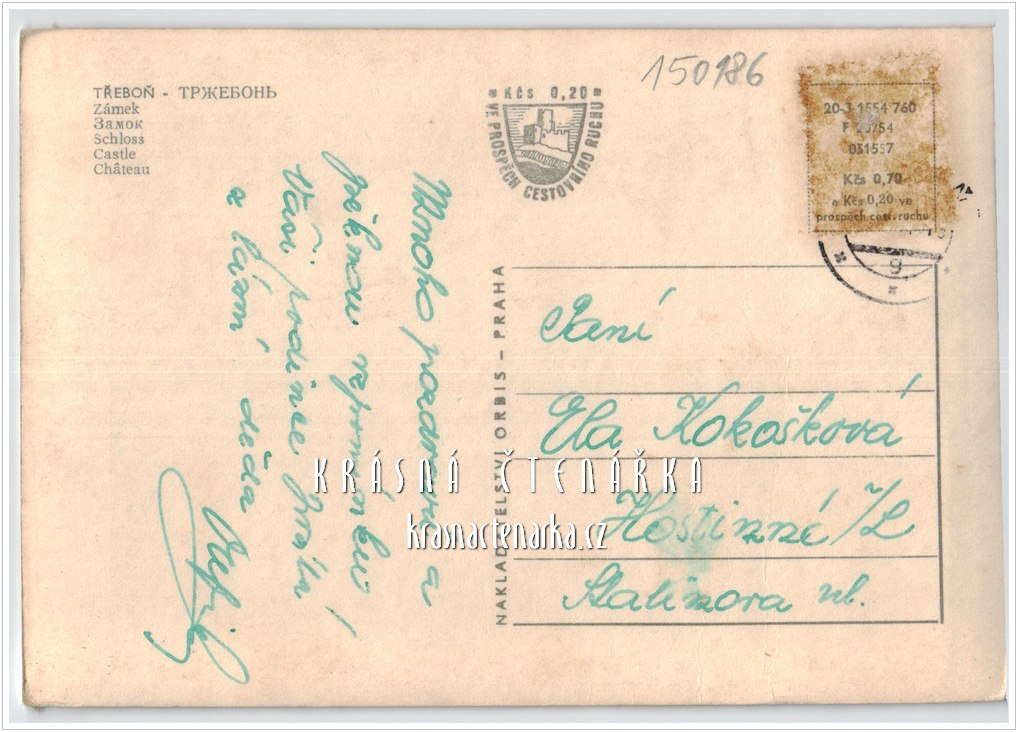 150186
TŘEBOŇ - ТРЖЕБОНЬ
Zámek
Замок
Schloss
Castle
Château
Kčs 0,20
VE PROSPĚCH CESTOVNÍHO RUCHU
20-3-1554 760
F 20/54
031557
Kčs 0,70
a Kčs 0,20 ve
prospěch cest. ruchu
9
Mnoho pozdravů a
pěknou vzpomínku
Vaší rodince
z lázní
NAKLADATELSTVÍ ORBIS - PRAHA
Paní
Ela Kokošková
Hostinné /L
Stalinova ul.
KRÁSNÁ ČTENÁŘKA
krasnactenarka.cz